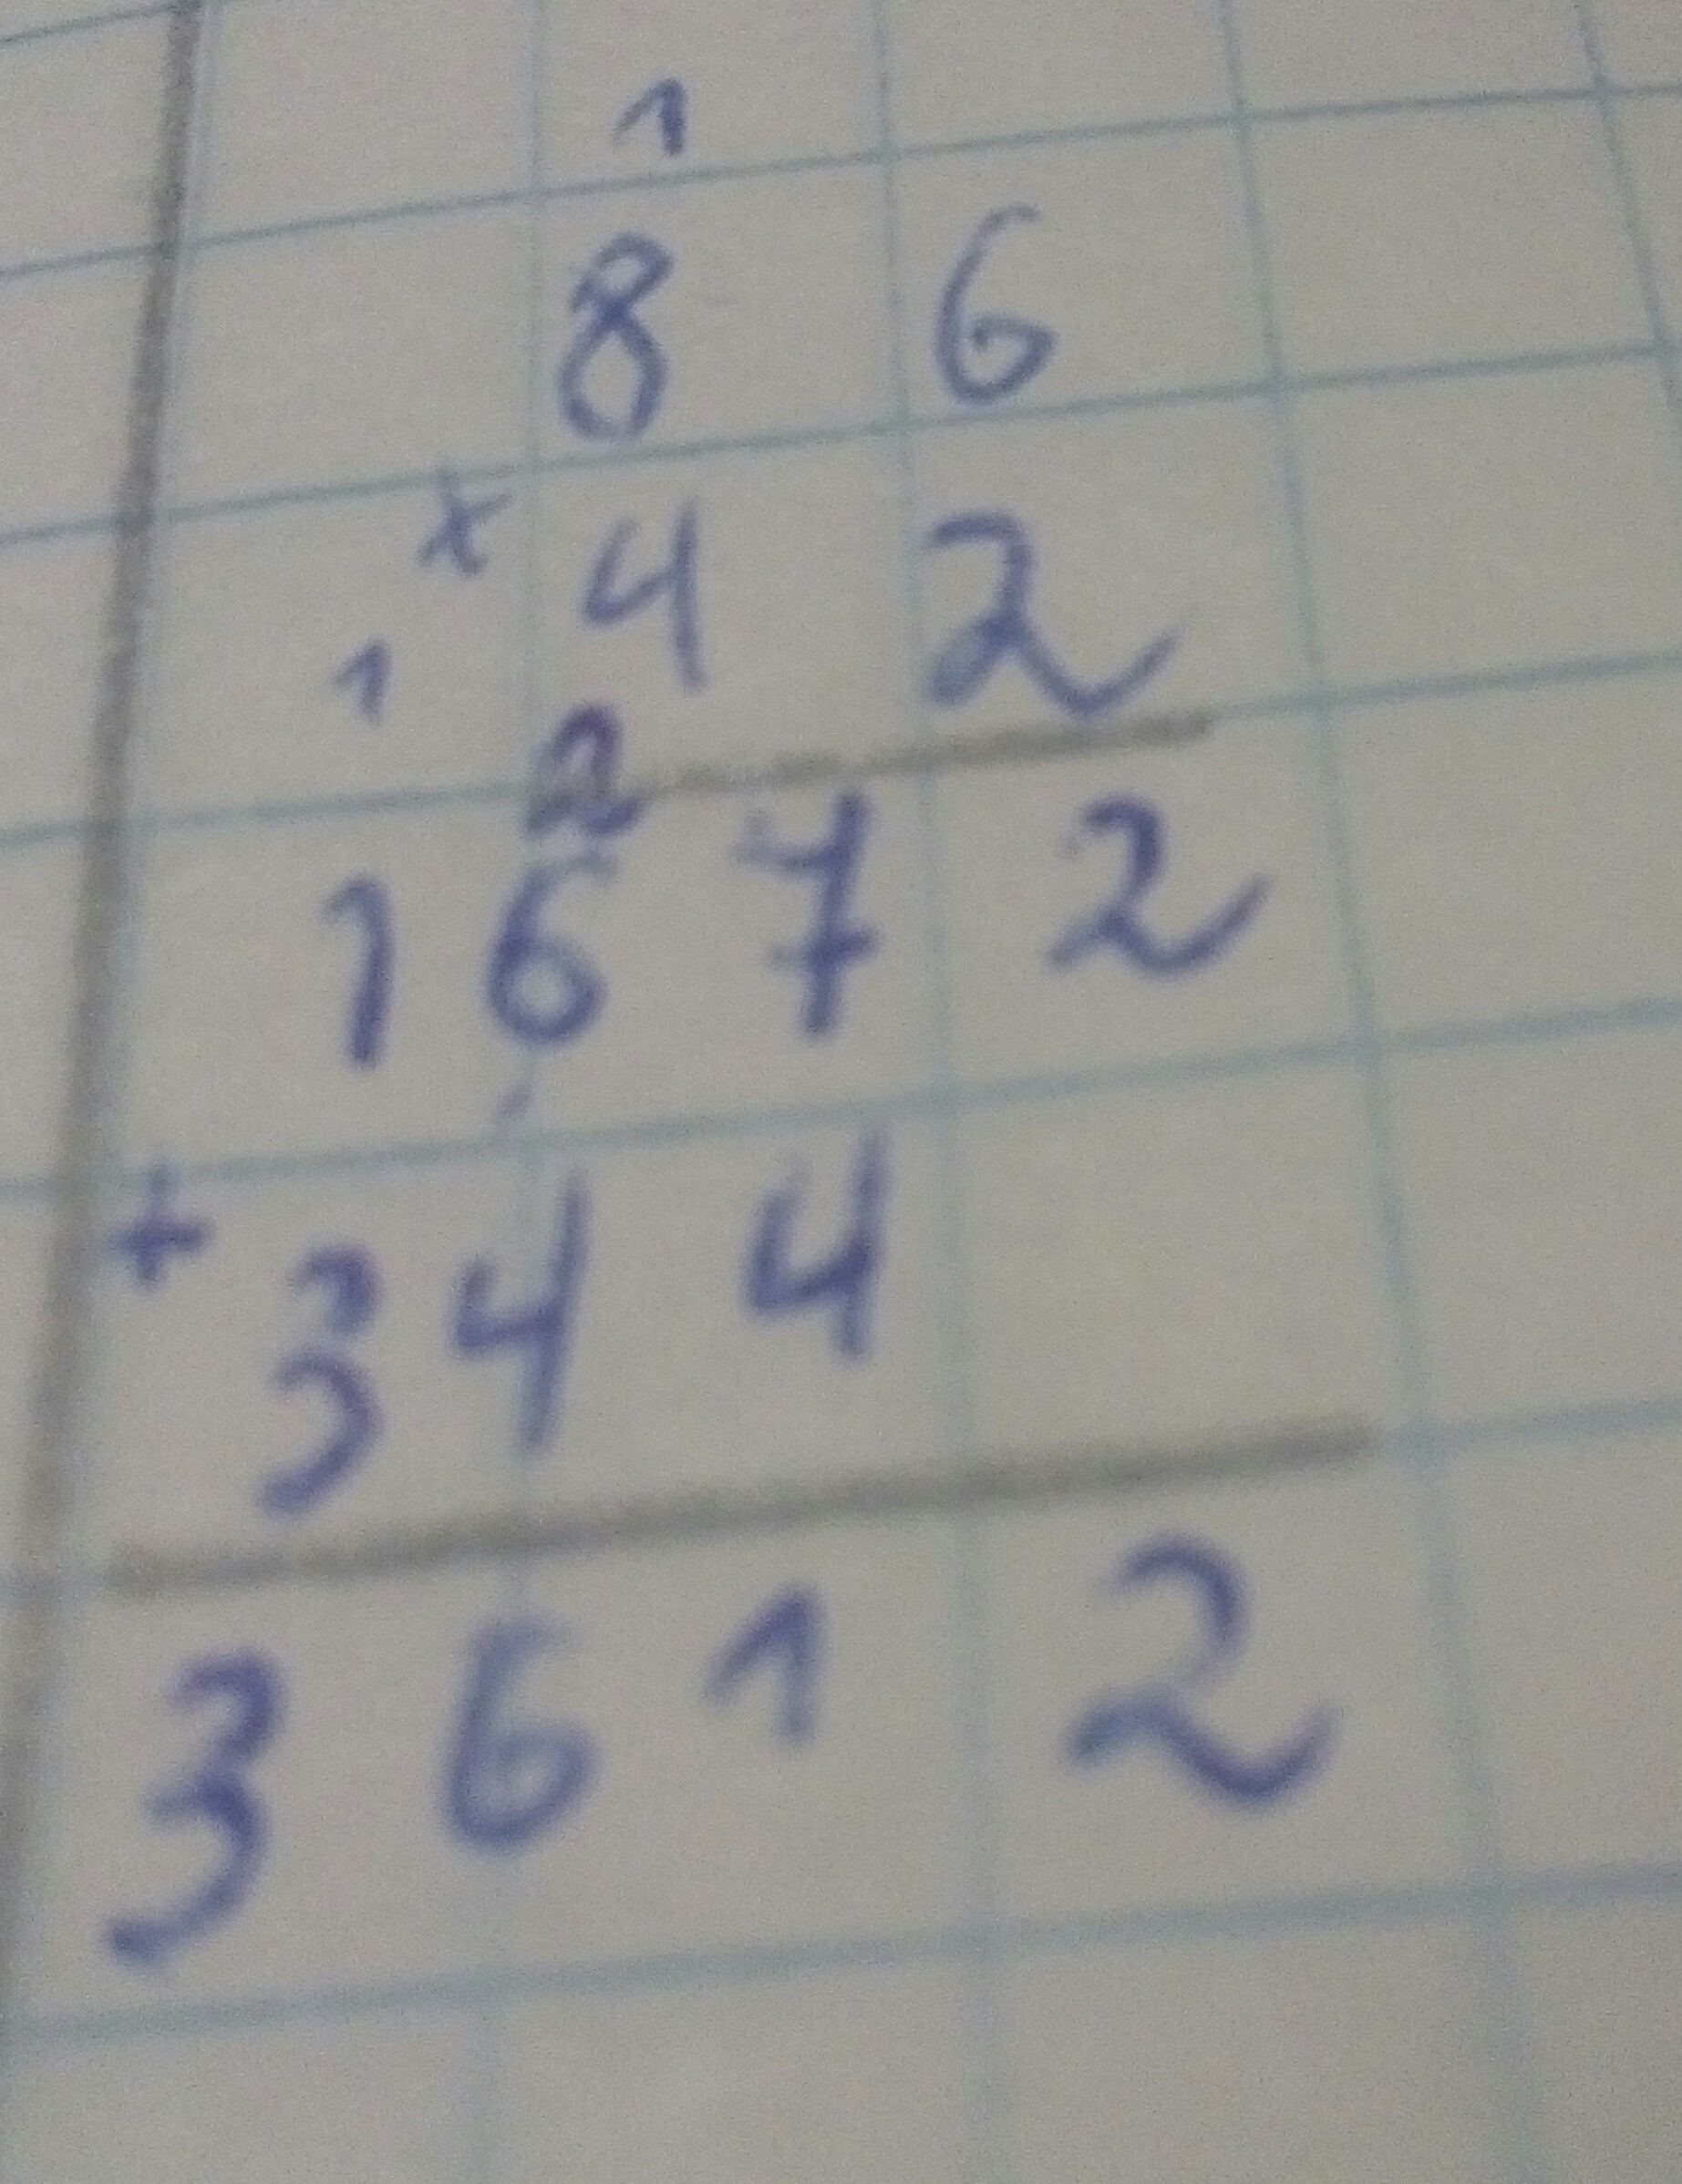 1
8 6
x 4 2
1 2
1 6 7 2
+ 3 4 4
3 6 1 2